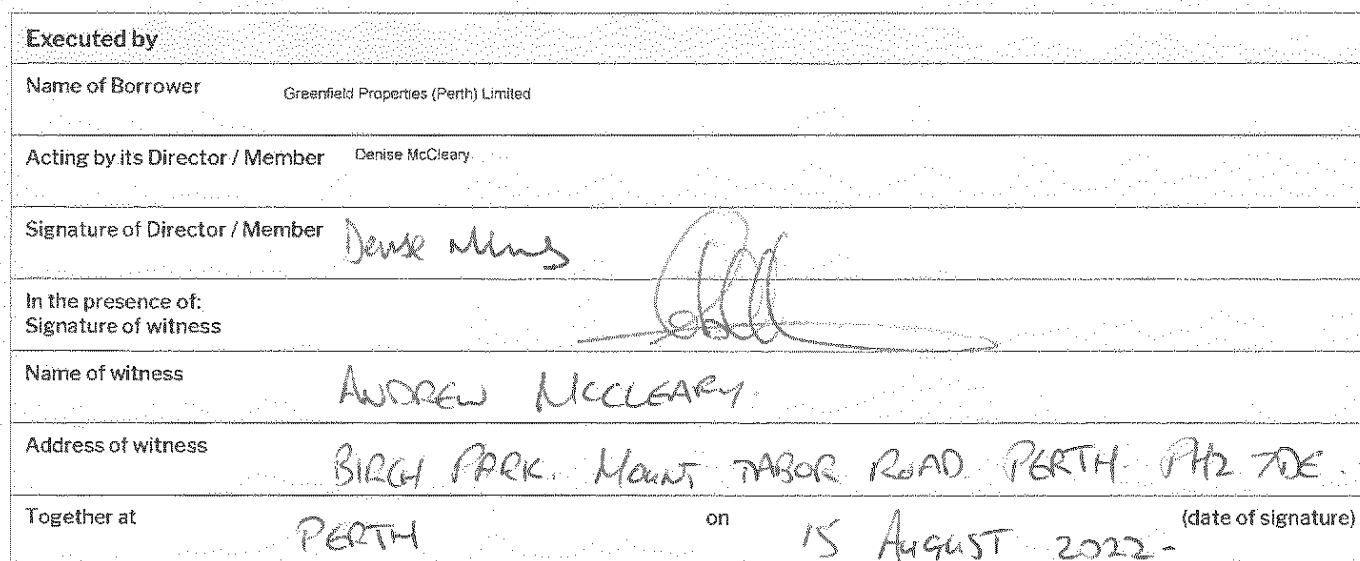 Executed by
Name of Borrower Greenfield Properties (Perth) Limited
Acting by its Director / Member Denise McCleary
Signature of Director / Member Denise
In the presence of:
Signature of witness
Name of witness ANDREW MCCLEARY.
Address of witness BIRCH PARK. MOUNT TABOR ROAD PERTH PH2 7DE.
Together at PERTH on 15 AUGUST 2022- (date of signature)